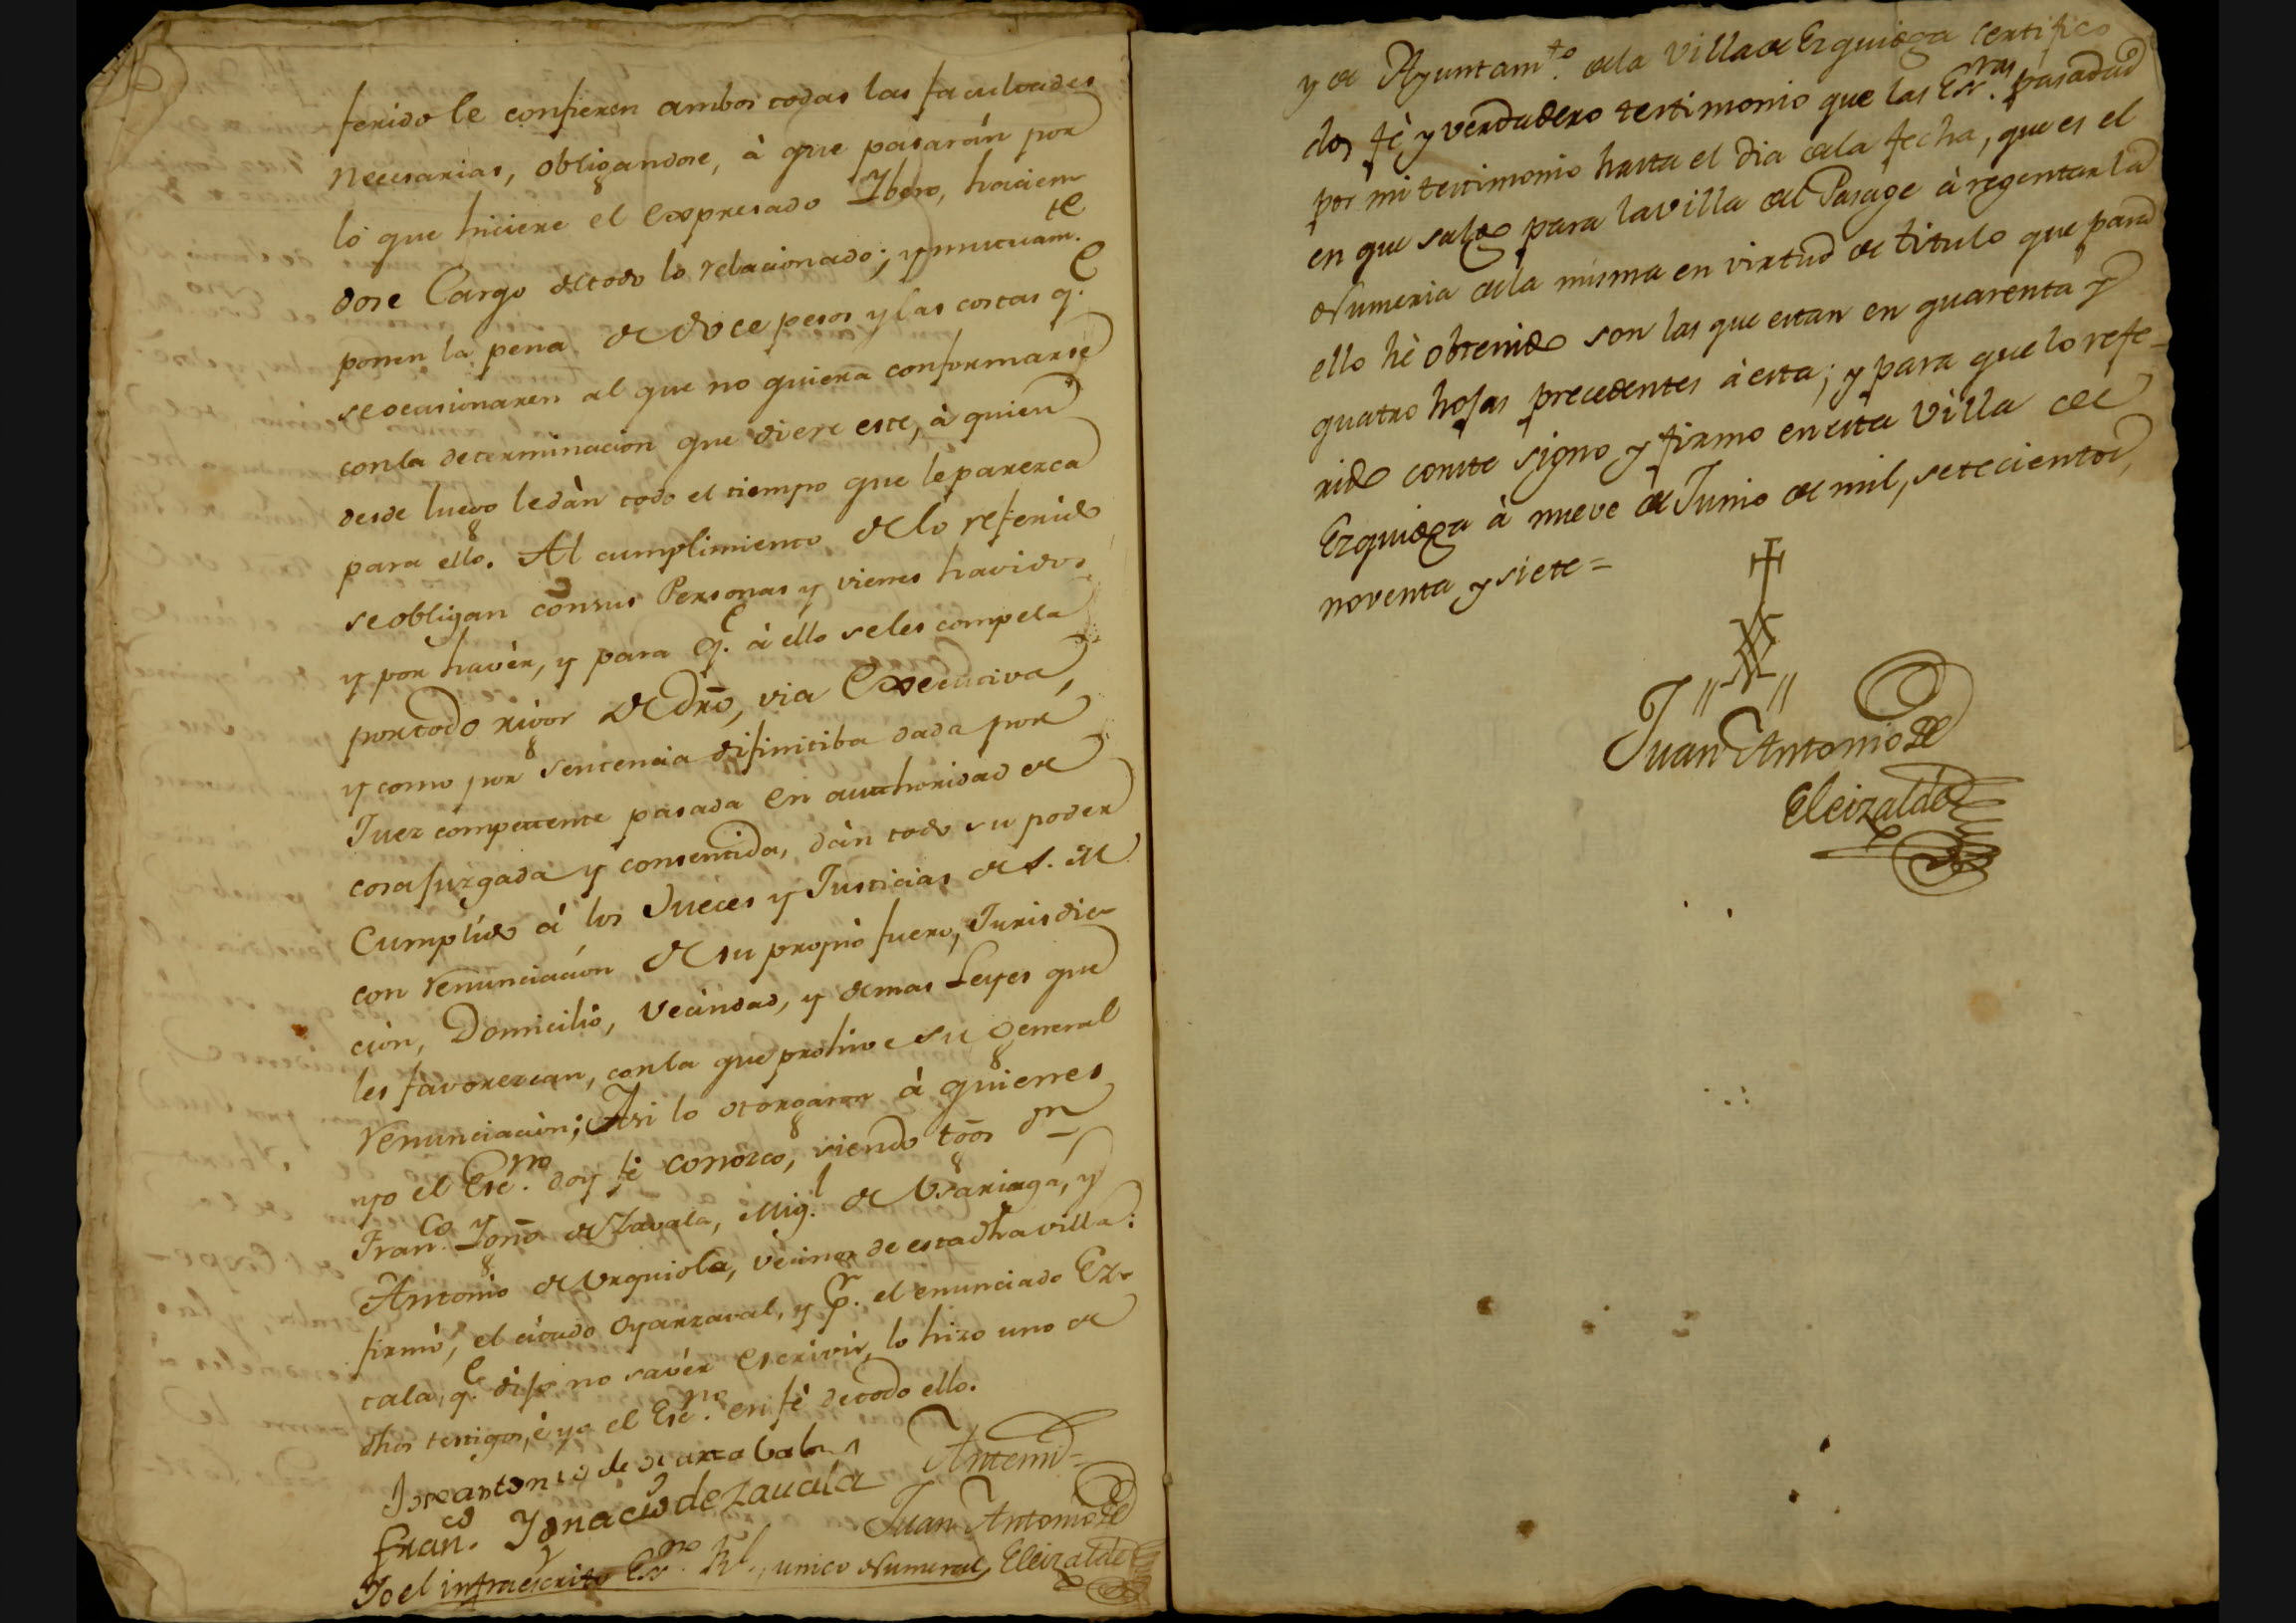 ferido le confieren ambos todas las facultades
necesarias, obligandose, à que pasarán por
lo que hiciere el expresado Ybero, hacien-
dose Cargo de todo lo relacionado; y mutuam.te
ponen la pena de doce pesos y las costas q.e
se ocasionaren al que no quiera conformarse
con la determinacion que diere este, à quien
desde luego le dàn todo el tiempo que le parezca
para ello. Al cumplimiento de lo referido
se obligan con sus Personas y vienes havidos
y por havèr, y para q.e à ello se les compela
por todo rigor de dro, via Executiva,
y como por sentencia difinitiba dada por
Juez competente pasada en authoridad de
cosa juzgada y consentida, dàn todo su poder
Cumplido à los Jueces y Justicias de S. M
con renunciacion de su propio fuero, Jurisdic-
cion, Domicilio, vecindad, y demas Leyes que
les favorezcan, con la que prohive su general
renunciacion; Asi lo otorgaron à quienes
yo el Esc.no doy fè conozco, siendo tgos Dn
Fran.co Ygn.o de Zavala, Mig.l de Ugariaga, y
Antonio de Urquiola, vecinos de esta dha villa:
firmò, el citado Oyarzaval, y p.r el enunciado Ez-
cala, q.e dijo no savèr escrivir, lo hizo uno de
dhos testigos, è yo el Esc.no en fè de todo ello.
Jose antonio de oiarzabal
Fran.co Ygnacio de Zauala
Antemi=
Juan Antonio de
Eleizalde
Yo el infraescrito Ess.no R.l, unico Numeral,
y de Ayuntam.to de la Villa de Ezquioga certifico
doy fè, y verdadero testimonio que las Ess.ras pasadas
por mi testimonio hasta el dia de la fecha, que es el
en que salgo para la villa del Pasage à regentar la
Numeria de la misma en virtud de titulo que para
ello hè obtenido son las que estan en quarenta y
quatro hojas precedentes à esta; y para que lo refe-
rido conste signo y firmo en esta Villa de
Ezquioga à nueve de Junio de mil, setecientos,
noventa y siete=
Juan Antonio de
Eleizalde